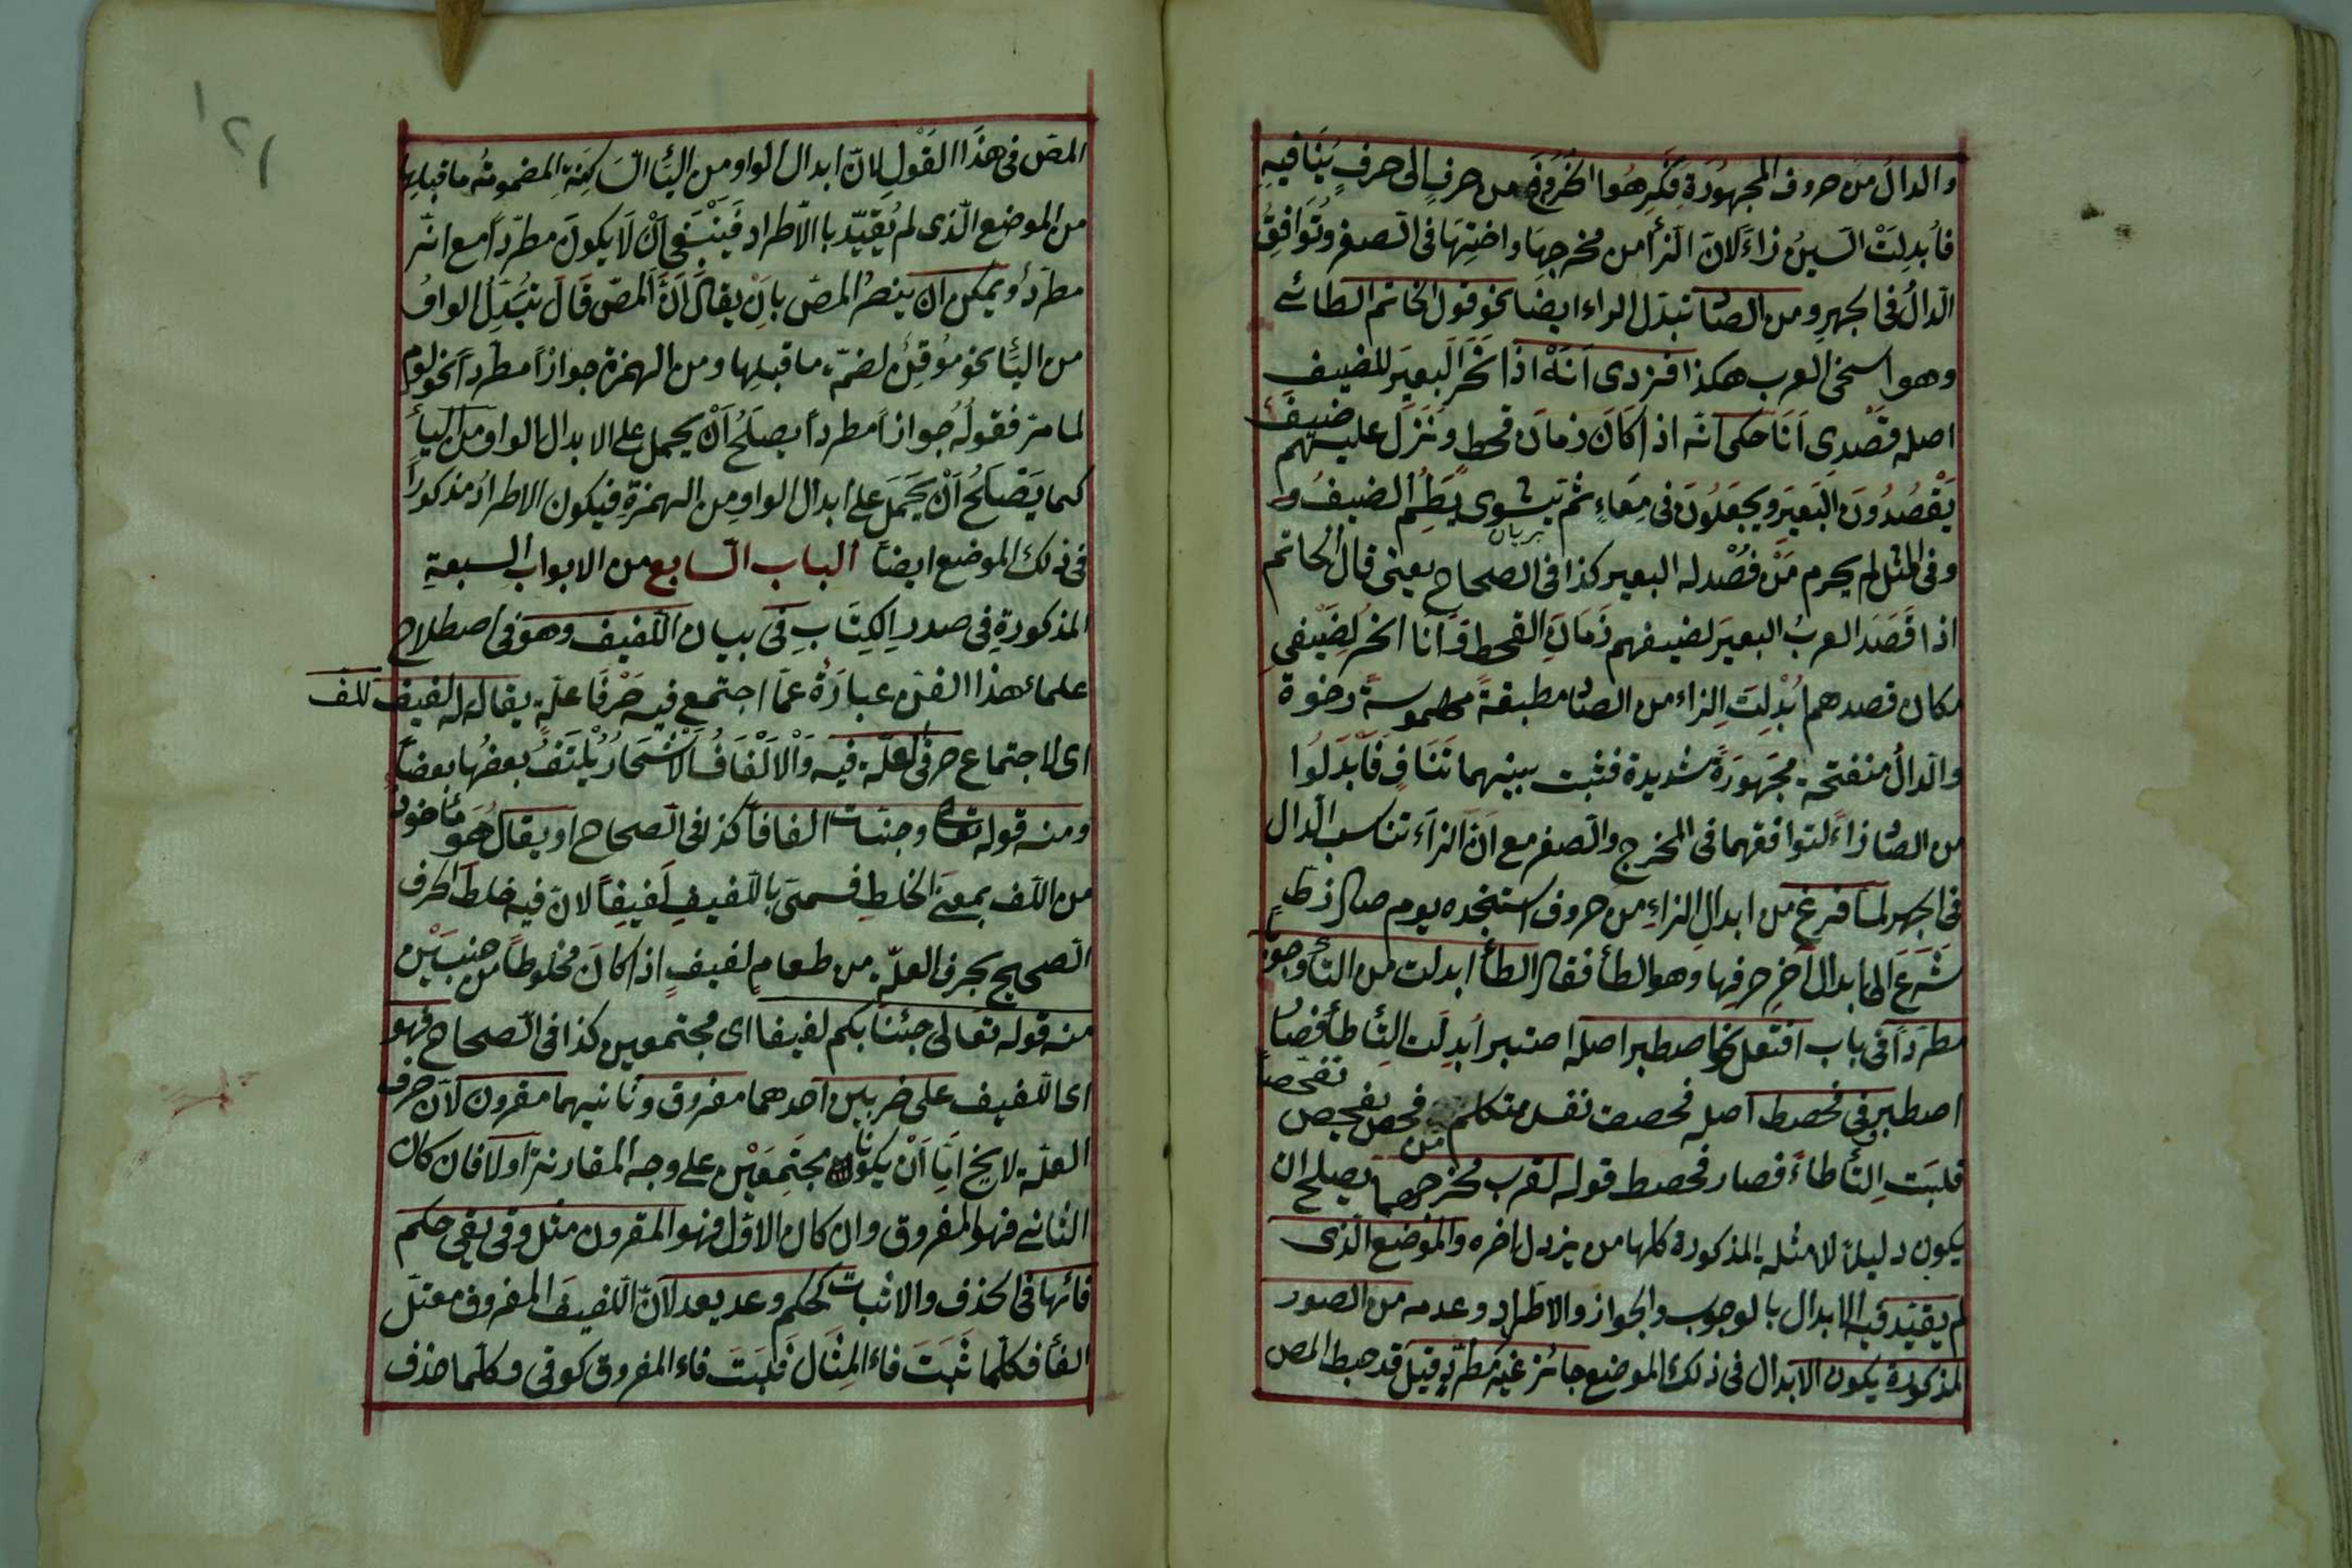 والدال من حروف المجهورة فكرهوا الخروج من حرف الى حرف ينافيه
فابدلت السين زاء لان الزأ من مخرجها واختها فى الصفر وتوافق
الدال فى الجهر ومن الصاد تبدل الراء ايضا نحو قول الحاتم الطائے
وهو اسخى العرب هكذا فزدى انه اذا نحر البعير للضيف
اصله فصدى انا حكى انه اذا كان زمان قحط ونزل عليهم ضيف
يقصدون البعير ويجعلون فى معاء ثم يشوى يطعم الضيف و
بريان
وفى المثل لم يحرم من فصد له البعير كذا فى الصحاح يعنى قال الحاتم
اذا قصد العرب البعير لضيفهم زمان القحط فانا انحر لضيفى
مكان فصدهم ابدلت الزاء من الصاد مطبقة مهموسة رخوة
والدال منفتحة مجهورة شديدة فثبت بينهما تناف فابدلوا
من الصاد زاء لتوافقهما فى المخرج والصفر مع ان الزاء تناسب الدال
فى الجهر لما فرغ من ابدال الزاء من حروف استنجده يوم صال زط
شرع الى ابدال آخر حرفها وهو الطأ فقال الطأ ابدلت من التأ وجوبا
مطردا فى باب افتعل نحو اصطبر اصله اصتبر ابدلت التأ طأ فصار
اصطبر وفى فحصط اصله فحصت نفس متكلم من فحص يفحص تفحصا
قلبت التأ طاء فصار فحصط قوله لقرب مخرجهما يصلح ان
يكون دليلا لامثلة المذكورة كلها من يزدل اخره والموضع الذى
لم يقيد فيه الابدال بالوجوب والجواز والاطراد وعدمه من الصور
المذكورة يكون الابدال فى ذلك الموضع جائز غير مطرد قيل قد خبط المص
المص فى هذا القول لان ابدال الواو من اليأ الساكنة المضمومة ما قبلها
من الموضع الذى لم يقيد با الاطراد فينبغى ان لا يكون مطردا مع انه
مطرد ويمكن ان ينصر المص بان يقال ان المص قال تبدل الواو
من اليأ نحو موقن لضمة ما قبلها ومن الهمزة جوازا مطردا نحو لوم
لما مر فقوله جوازا مطردا يصلح ان يحمل على الابدال الواو من اليأ
كما يصلح ان يحمل على ابدال الواو من الهمزة فيكون الاطراد مذكورا
فى ذلك الموضع ايضا الباب السابع من الابواب السبعة
المذكورة فى صدر الكتاب فى بيان اللفيف وهو فى اصطلاح
علماء هذا الفن عبارة عما اجتمع فيه حرفا علة يقال له لفيف للف
اى لاجتماع حرفى العلة فيه والالفاف الاشجار يلتف بعضها بعضا
ومنه قوله تعالى وجنات الفافا كذا فى الصحاح او يقال هو مأخوذ
من اللف بمعنى الخلط فسمى باللفيف لفيفا لان فيه خلط الحرف
الصحيح بحرف العلة من طعام لفيف اذا كان مخلوطا من جنسين
منه قوله تعالى جئنا بكم لفيفا اى مجتمعين كذا فى الصحاح فهو
اى اللفيف على ضربين احدهما مفروق وثانيهما مقرون لان حرف
العلة لا يخ اما ان يكونا مجتمعين على وجه المقارنة اولا فان كان
الثانے فهو المفروق وان كان الاول فهو المقرون مثل وقى يقى حكم
فائها فى الحذف والاثبات كحكم وعد يعد لان اللفيف المفروق معتل
الفأ فكلما ثبت فاء المثال ثبت فاء المفروق كوقى وكلما حذف